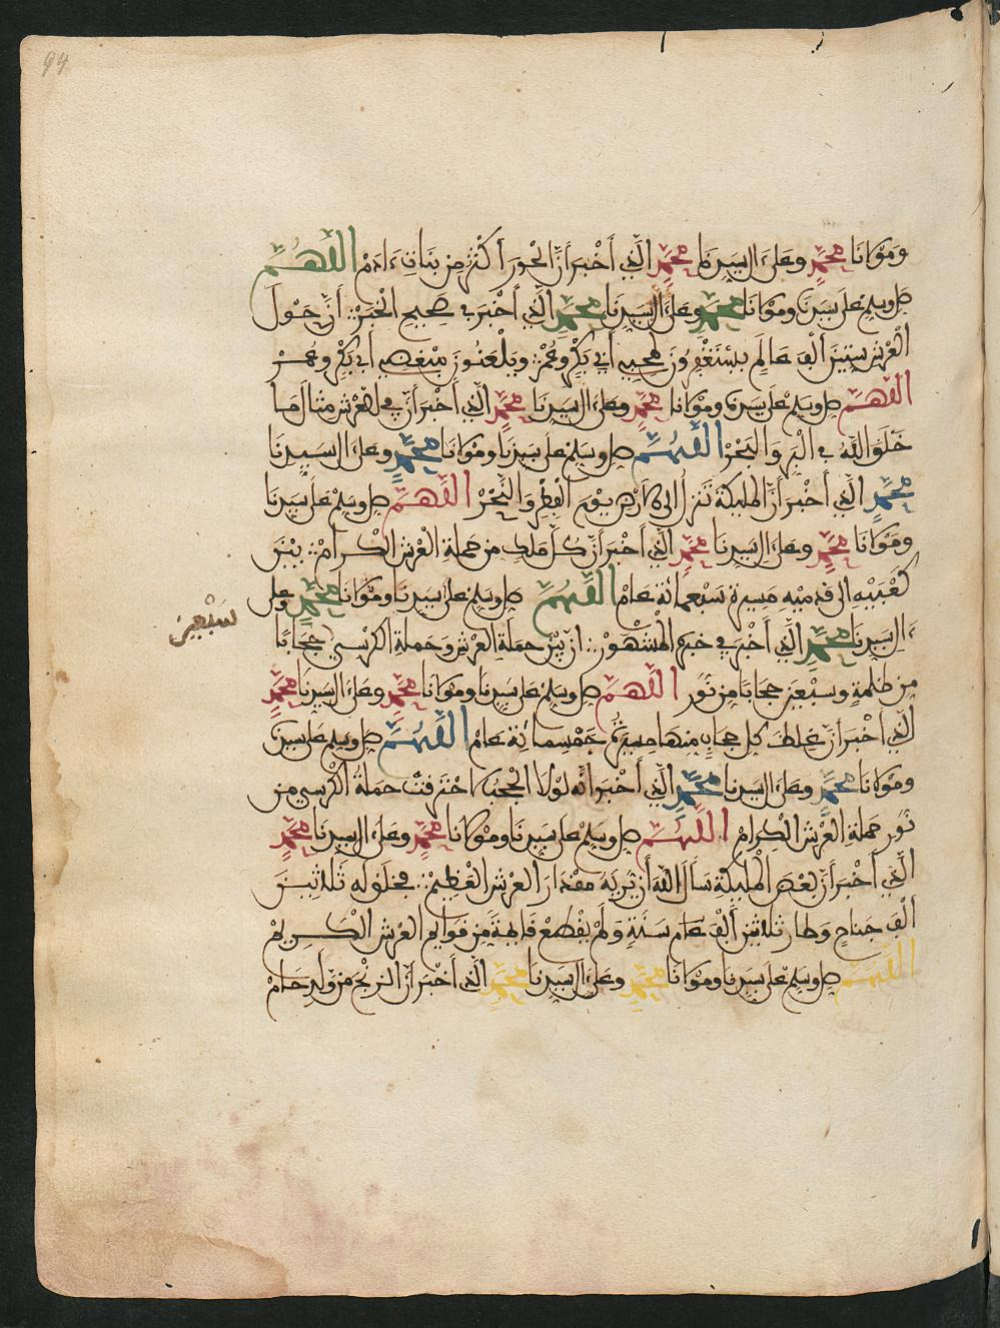 94
ومولانا محمد وعلى ءال سيدنا محمد الذي أخبر أن الحور أكثر من بنات ءادم اللهم
صل وسلم على سيدنا ومولانا محمد وعلى ءال سيدنا محمد الذي أخبر في صحيح الخبر أن حول
العرش ستين ألف عالم يستغفرون لمحبي أبي بكر وعمر ويلعنون مبغضي أبي بكر وعمر
اللهم صل وسلم على سيدنا ومولانا محمد وعلى ءال سيدنا محمد الذي أخبر أن في العرش مثال ما
خلق الله في البر والبحر اللهم صل وسلم على سيدنا ومولانا محمد وعلى ءال سيدنا
محمد الذي أخبر أن الملئكة تنزل إلى الأرض يوم الفطر والنحر اللهم صل وسلم على سيدنا
ومولانا محمد وعلى ءال سيدنا محمد الذي أخبر أن كل ملك من حملة العرش الكرام بين
كعبيه إلى قدميه مسيرة سبعمائة عام اللهم صل وسلم على سيدنا ومولانا محمد وعلى
ءال سيدنا محمد الذي أخبر في خبره المشهور أن بين حملة العرش وحملة الكرسي حجابا
سبعين
من ظلمة وسبعين حجابا من نور اللهم صل وسلم على سيدنا ومولانا محمد وعلى ءال سيدنا محمد
الذي أخبر أن غلظ كل حجاب منها مسيرة خمسمائة عام اللهم صل وسلم على سيدنا
ومولانا محمد وعلى ءال سيدنا محمد الذي أخبر أنه لولا الحجب لاحترقت حملة الكرسي من
نور حملة العرش الكرام اللهم صل وسلم على سيدنا ومولانا محمد وعلى ءال سيدنا محمد
الذي أخبر أن بعض الملئكة سأل الله أن يريه مقدار العرش العظيم فخلق له ثلاثين
ألف جناح وطار ثلاثين ألف عام سنة ولم يقطع قايمة من قوايم العرش الكريم
اللهم صل وسلم على سيدنا ومولانا محمد وعلى ءال سيدنا محمد الذي أخبر أن الزنج من ولد حام